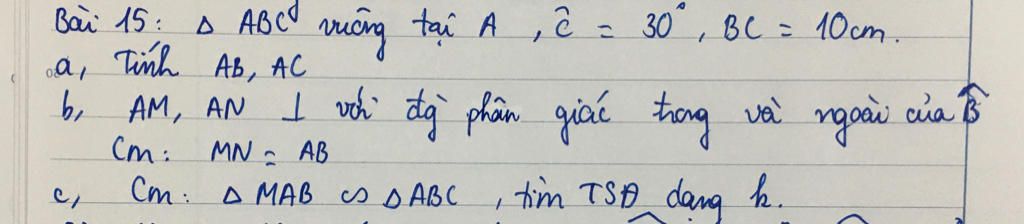 Bài 15: Δ ABC vuông tại A , ĉ = 30° , BC = 10cm.
a, Tính AB, AC
b, AM, AN ⊥ với đg phân giác trong và ngoài của B̂
Cm: MN = AB
c, Cm: Δ MAB ∽ Δ ABC , tìm TSĐ dạng k.